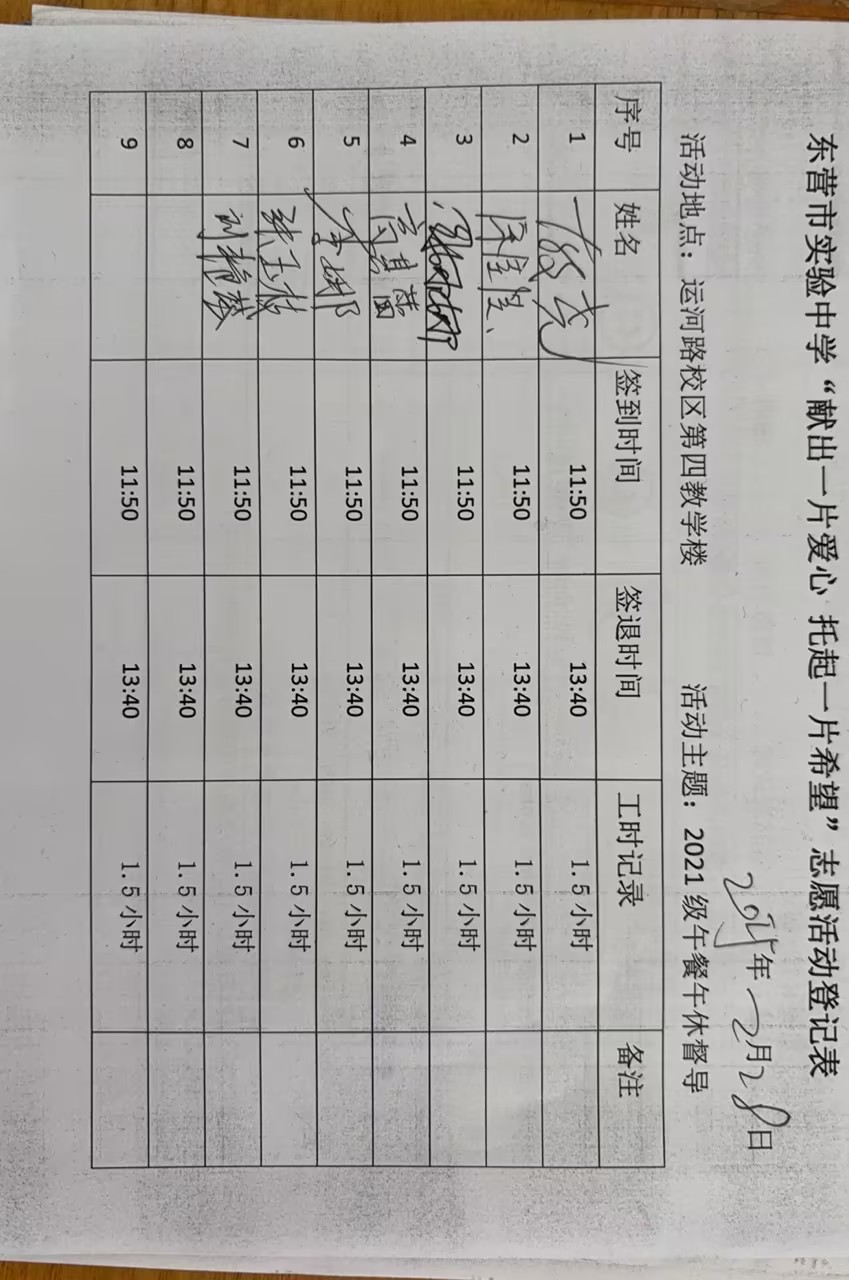 东营市实验中学“献出一片爱心 托起一片希望”志愿活动登记表
年 月28日
活动地点：运河路校区第四教学楼 活动主题：2021级午餐午休督导
序号 姓名 签到时间 签退时间 工时记录 备注
1 11:50 13:40 1.5小时
2 11:50 13:40 1.5小时
3 11:50 13:40 1.5小时
4 11:50 13:40 1.5小时
5 李娜 11:50 13:40 1.5小时
6 张玉 11:50 13:40 1.5小时
7 刘艳 11:50 13:40 1.5小时
8 11:50 13:40 1.5小时
9 11:50 13:40 1.5小时